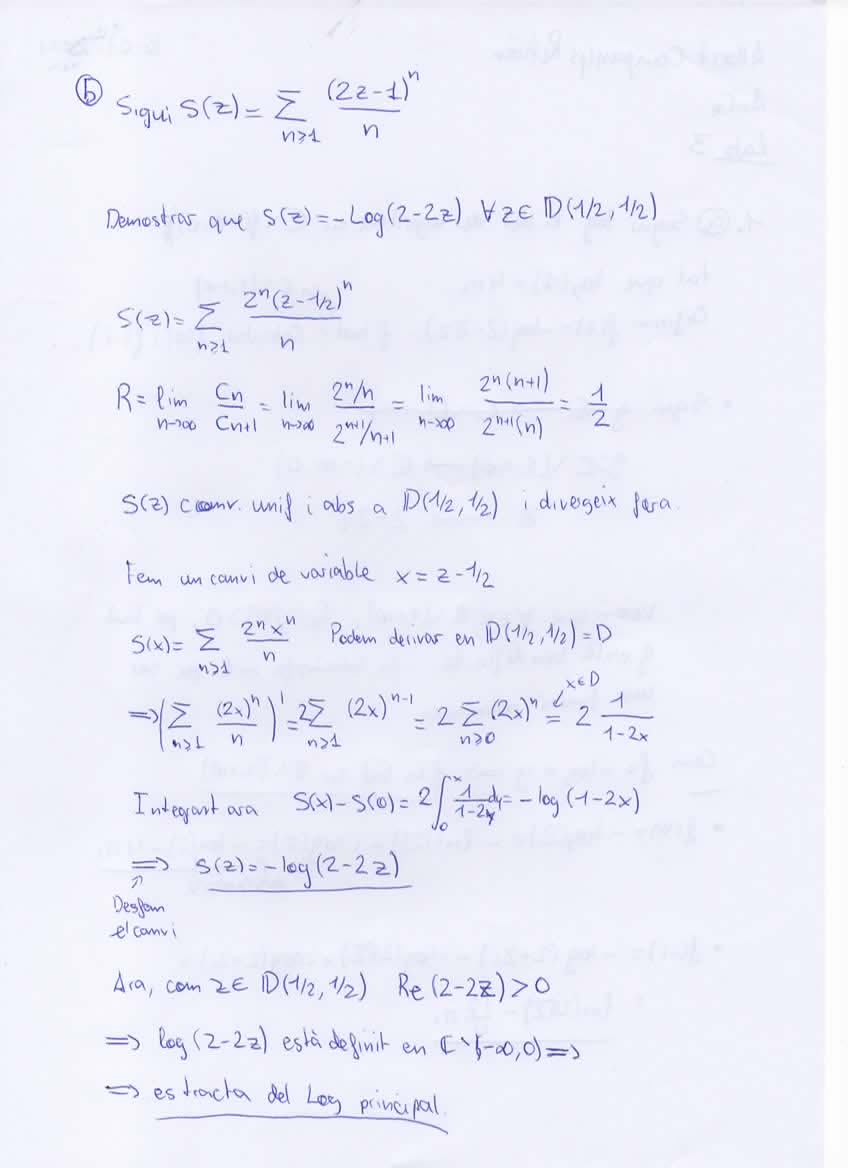 b) Sigui S(z) = ∑_{n≥1} (2z-1)^n / n
Demostrar que S(z) = -Log(2-2z) ∀z∈ 𝔻(1/2, 1/2)
S(z) = ∑_{n≥1} 2^n (z-1/2)^n / n
R = lim_{n→∞} Cn / Cn+1 = lim_{n→∞} (2^n/n) / (2^{n+1}/n+1) = lim_{n→∞} 2^n (n+1) / 2^{n+1} (n) = 1/2
S(z) conv. unif i abs a 𝔻(1/2, 1/2) i divergeix fora.
Fem un canvi de variable x = z - 1/2
S(x) = ∑_{n≥1} 2^n x^n / n Podem derivar en 𝔻(1/2, 1/2) = D
⇒ (∑_{n≥1} (2x)^n / n)' = 2∑_{n≥1} (2x)^{n-1} = 2 ∑_{n≥0} (2x)^n = 2 1/(1-2x)
x∈D
Integrant ara S(x) - S(0) = 2∫_0^x 1/(1-2y) dy = -log(1-2x)
⇒ S(z) = -log(2-2z)
Desfem
el canvi
Ara, com z∈ 𝔻(1/2, 1/2) Re(2-2z) > 0
⇒ log(2-2z) està definit en ℂ\(-∞,0) ⇒
⇒ es tracta del Log principal.